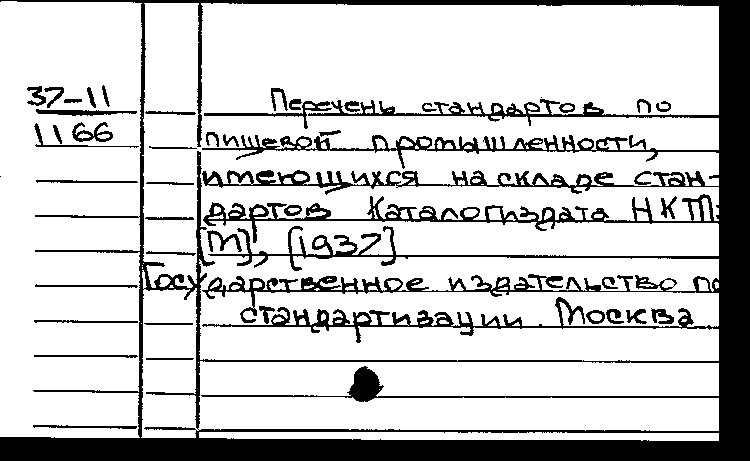 37-11
1166
Перечень стандартов по
пищевой промышленности,
имеющихся на складе стан-
дартов Каталогиздата НКТП:
[М], [1937].
Государственное издательство по
стандартизации. Москва